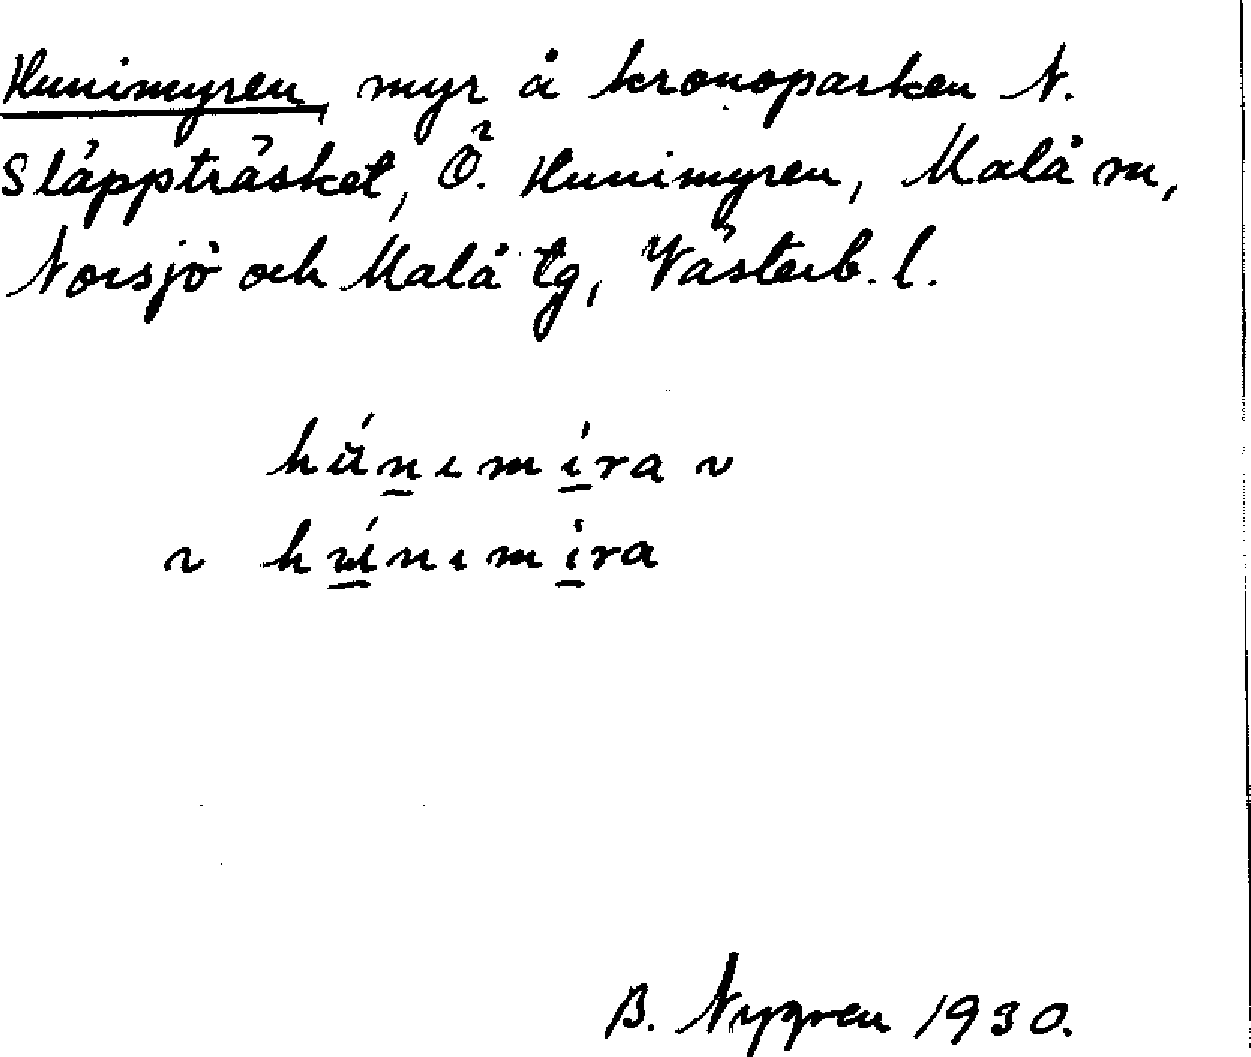 Hunimyren, myr å kronoparken N.
Släppträsket, Ö. Hunimyren, Malå sn,
Norsjö och Malå tg, Västerb. l.
hú̆n̲ɩmí̲ra ~
~ hú̲nɩmí̲ra
B. Nygren 1930.